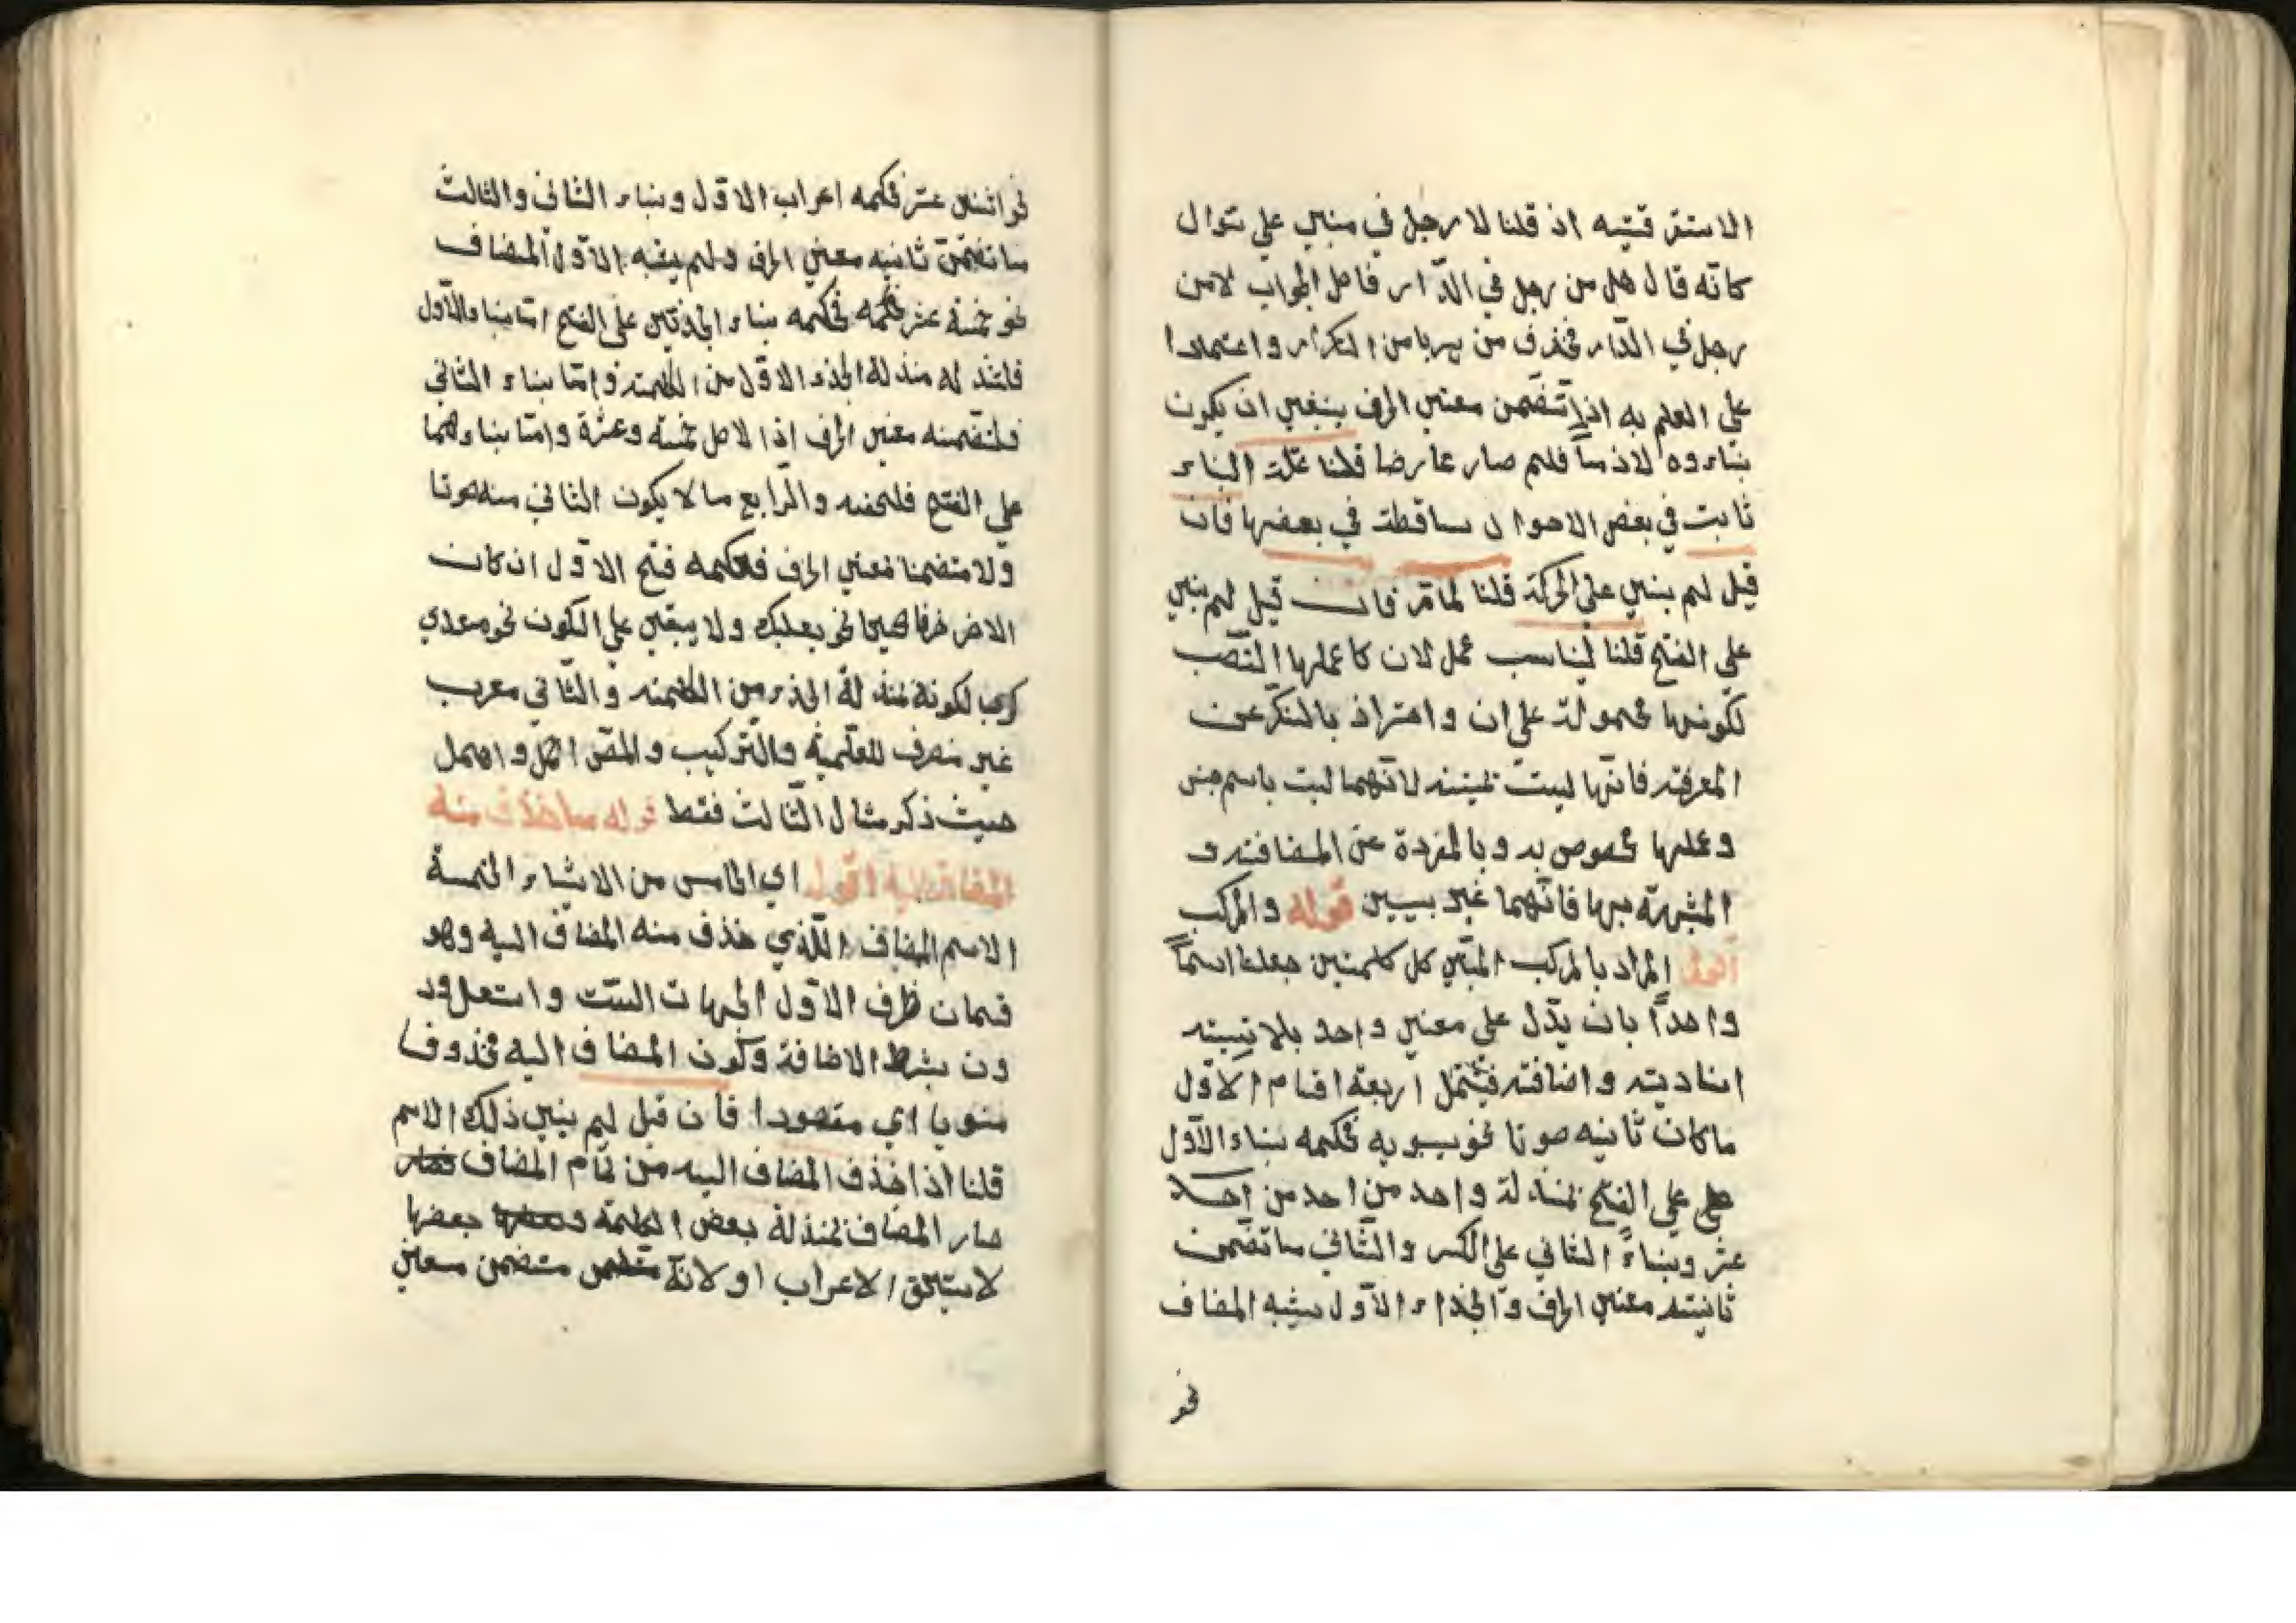 الاستغر قيته اذ قلنا لا رجل في مبني على سؤال
كانّه قال هل من رجل في الدّار فاصل الجواب لا من
رجل في الدّار فحذف من هربا من التكرار واعتمادا
على العلم به اذا تضمن معنى الحرف ينبغي ان يكون
بناءوه لازماً فلم صار عارضا قلنا علّة البناء
ثابت في بعض الاحوال ساقطة في بعضها فان
قيل لم بني على الحركة قلنا لما مرّ فان قيل لم بني
على الفتح قلنا ليناسب عمل لان كا عملها النّصب
لكونها محمولة على ان واحتراز بالنكر عن
المعرفة فانّها ليست بمبنية لانّهما ليست باسم جنس
وعملها مخصوص به وبالمفردة عن المضافة و
المشبهة بها فانّهما غير بنيين قوله والمركب
اقول المراد بالمركب المبني كل كلمتين جعلتا اسماً
واحداً بان يدّل على معنى واحد بلا نسبة
اسنادية واضافة فيشتمل اربعة اقسام الاوّل
ما كان ثانيه صوتا نحو سيبويه فحكمه بناء الاوّل
على على الفتح بمنزلة واحد من احد من احد
عشر وبناءً الثاني على الكسر والثّاني ما تضمن
ثانيته معنى الحرف والجزاء الاوّل يشبه المضاف
نحو
نحو اثنين عشر فحكمه اعراب الاوّل وبناء الثاني والثالث
ما تضمّن ثانيه معنى الحرف ولم يشبه الاوّل المضاف
نحو خمسة عشر فحكمه فحكمه بناء الجزئين على الفتح امّا بناء الاوّل
فلتنزله منزلة الجزء الاوّل من الكلمة وامّا بناء الثاني
فلتضمنه معنى الحرف اذا لاصل خمسة وعشرة وامّا بناءهما
على الفتح فلخفته والرّابع ما لا يكون الثاني منه صوتا
ولا متضمنا معنى الحرف فحكمه فتح الاوّل ان كان
الاخر حرفا صحيحا نحو بعلبك ولا يبقى على السكون نحو معدي
كرب لكونه بمنزلة الجزء من الكلمة والثّاني معرب
غير منصرف للعلمية والتّركيب والمصّ اهمل
حيث ذكر مثال الثّالث فقط قوله ما حذف منه
المضاف اليه اقول اي الخامس من الاشياء الخمسة
الاسم المضاف الّذي حذف منه المضاف اليه وهو
قسمان ظرف الاوّل الجهات السّت
ون بشرط الاضافة وكون المضاف اليه محذوفا
منويا اي مقصودا فان قيل لم بني ذلك الاسم
قلنا اذا حذف المضاف اليه من تمام المضاف فصار
صار المضاف بمنزلة بعض الكلمة وبعضها بعضها
لا يستحق الاعراب او لانّه متضمن معنى